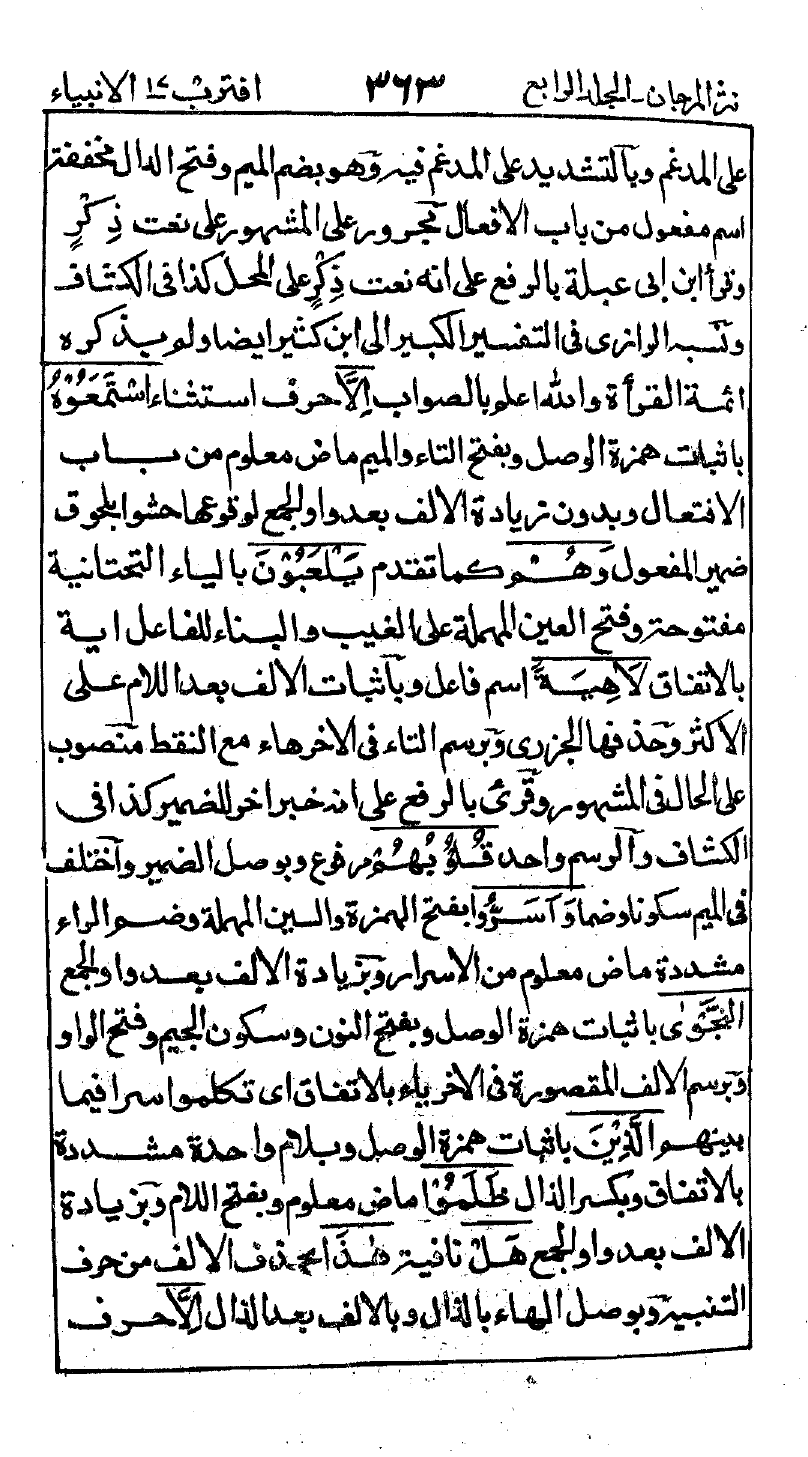 نثر المرجان - المجلد الرابع ٣٦٣ اقترب ١٧ الانبياء
على المدغم وبالتشديد على المدغم فيه وهو بضم الميم وفتح الدال مخففة
اسم مفعول من باب الافعال مجرور على المشهور على نعت ذِكْرٍ
وقرأ ابن ابى عبلة بالرفع على انه نعت ذِكْرٍ على المحل كذا فى الكشاف
ونسبه الرازى فى التفسير الكبير الى ابن كثير ايضا ولم يذكره
ائمة القرأة والله اعلم بالصواب اِلَّا حرف استثناء اسْتَمَعُوْهُ
باثبات همزة الوصل وبفتح التاء والميم ماض معلوم من باب
الافتعال وبدون زيادة الالف بعد واو الجمع لوقوعها حشوا بلحوق
ضمير المفعول وَهُمْ كما تقدم يَلْعَبُوْنَ بالياء التحتانية
مفتوحة وفتح العين المهملة على الغيب والبناء للفاعل اية
بالاتفاق لَاهِيَةً اسم فاعل وباثبات الالف بعد اللام على
الاكثر وحذفها الجزرى وبرسم التاء فى الاخر هاء مع النقط منصوب
على الحال فى المشهور وقرئ بالرفع على انه خبر اخر للضمير كذا فى
الكشاف والرسم واحد قُلُوْبُهُمْ مرفوع وبوصل الضمير واختلف
فى الميم سكونا وضما وَاَسَرُّوا بفتح الهمزة والسين المهملة وضم الراء
مشددة ماض معلوم من الاسرار وبزيادة الالف بعد واو الجمع
النَّجْوٰى باثبات همزة الوصل وبفتح النون وسكون الجيم وفتح الواو
وبرسم الالف المقصورة فى الاخر ياء بالاتفاق اى تكلموا سرا فيما
بينهم الَّذِيْنَ باثبات همزة الوصل وبلام واحدة مشددة
بالاتفاق وبكسر الذال ظَلَمُوْا ماض معلوم وبفتح اللام وبزيادة
الالف بعد واو الجمع هَلْ نافية هٰذَا بحذف الالف من حرف
التنبيه وبوصل الهاء بالذال وبالالف بعد الذال اِلَّا حرف